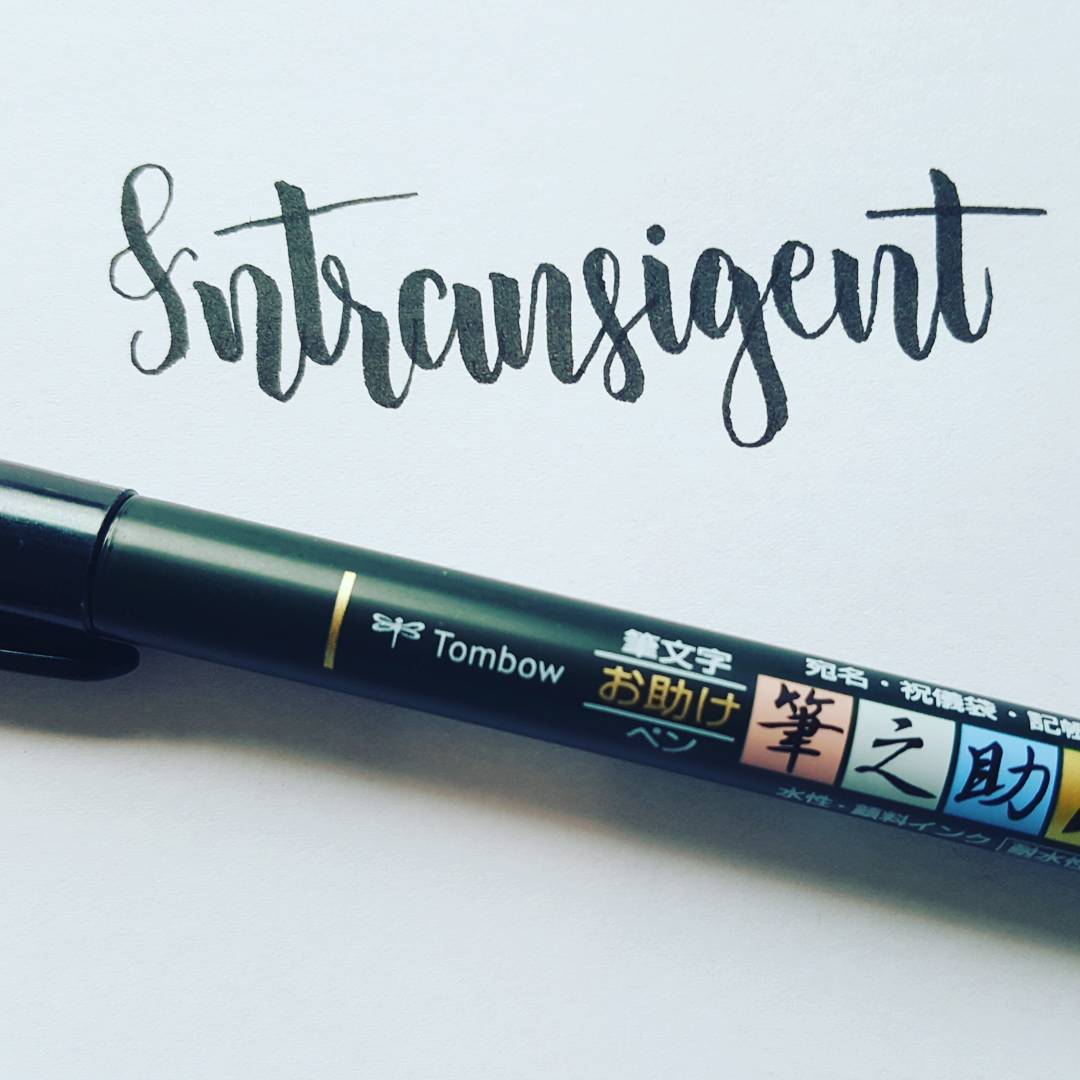 Intransigent
Tombow
筆文字
お助け
ペン
宛名・祝儀袋・記帳
筆之助
水性・顔料インク「耐水性